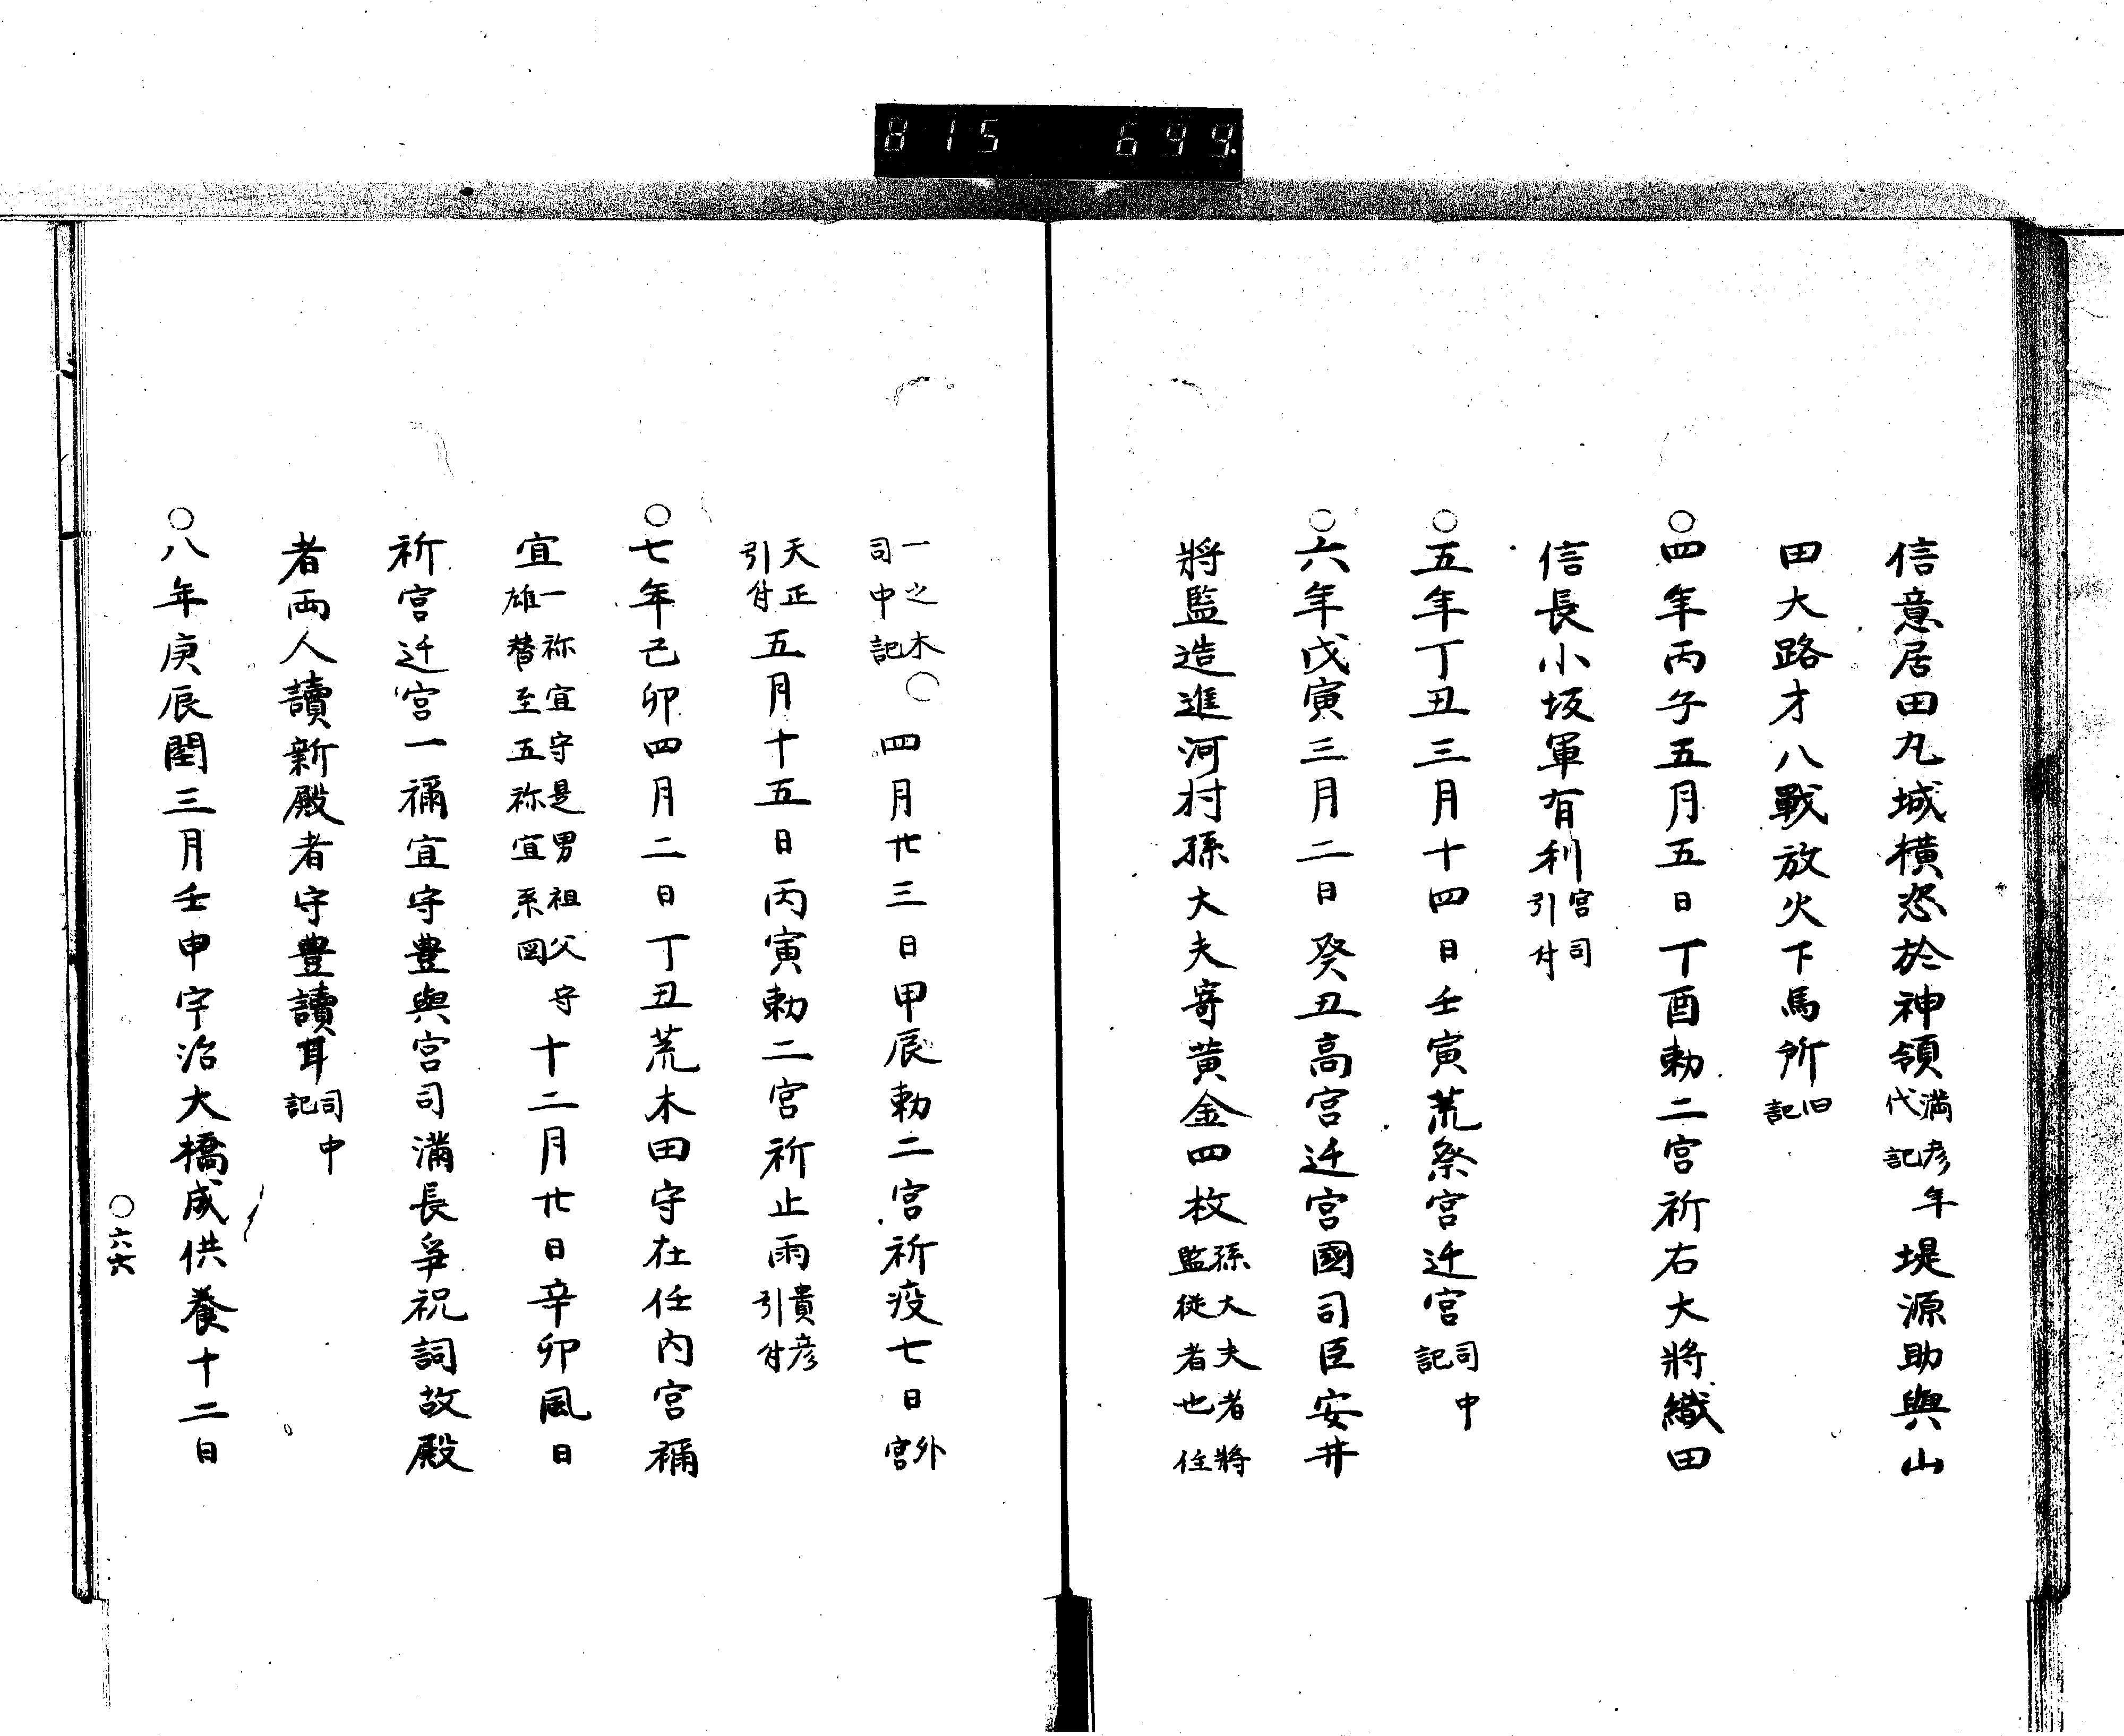 815 699.
信意居田丸城横恣於神領満彦年代記堤源助與山
田大路才八戦放火下馬所旧記
○四年丙子五月五日丁酉勅二宮祈右大將織田
信長小坂軍有利宮司引付
○五年丁丑三月十四日壬寅荒祭宮迁宮司中記
○六年戊寅三月二日癸丑高宮迁宮國司臣安井
將監造進河村孫大夫寄黄金四枚孫大夫者將監従者也住
一之木司中記○四月廿三日甲辰勅二宮祈疫七日外宮
天正引付五月十五日丙寅勅二宮祈止雨貴彦引付
○七年己卯四月二日丁丑荒木田守在任内宮禰
宜一祢宜守是男祖父守雄替至五祢宜系図十二月廿日辛卯風日
祈宮迁宮一禰宜守豊與宮司満長爭祝詞故殿
者両人讀新殿者守豊讀耳司中記
○八年庚辰閏三月壬申宇治大橋成供養十二日
○六六